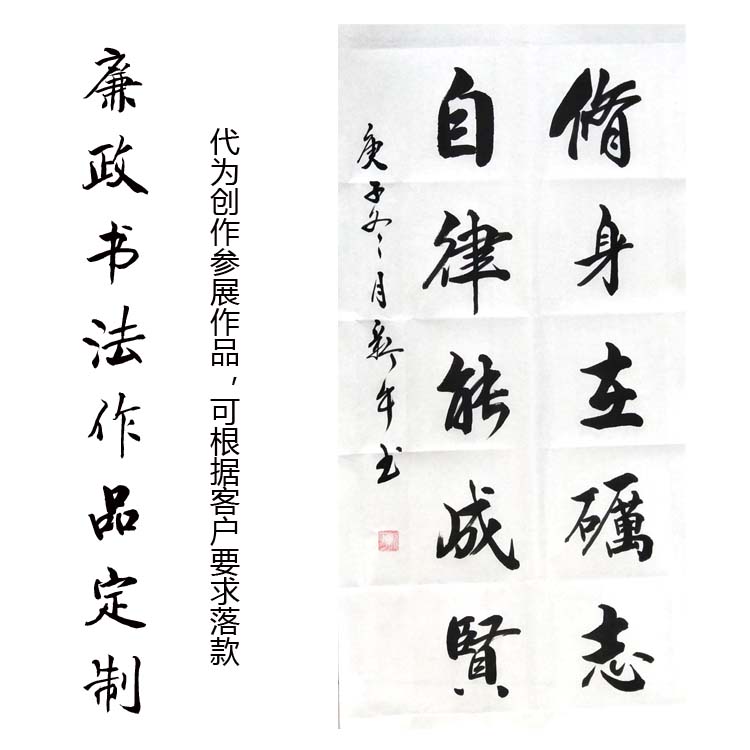 廉政书法作品定制
代为创作参展作品，可根据客户要求落款
脩身在礪志
自律能成賢
庚子冬月新午书